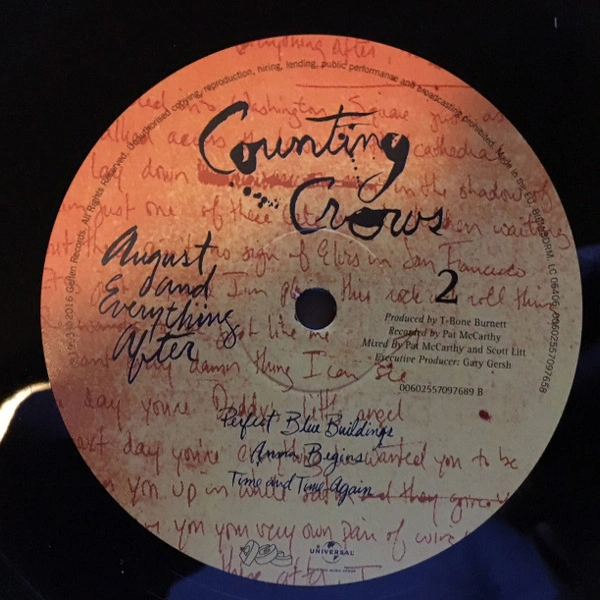 everything after,
All Rights Reserved. Unauthorised copying, reproduction, hiring, lending, public performance and broadcasting prohibited. Made in the EU. BIEM/SDRM, LC 06406, 00602557097658
2016 Geffen Records.
Washington Square just as
walked across the cathedral
lay down in the shadow of
just one of these when waiting
Counting
Crows
sign of Elvis in San Francisco
August
and
Everything
After
I'm this rock n roll thing
2
Produced by T-Bone Burnett
Recorded by Pat McCarthy
Mixed By Pat McCarthy and Scott Litt
Executive Producer: Gary Gersh
like me
damn thing I can see
00602557097689 B
day you're Daddy's little angel
Perfect Blue Buildings
next day you're wanted you to be
Anna Begins
Time and Time Again
you up in white and they
you your very own pair of
UNIVERSAL
after I